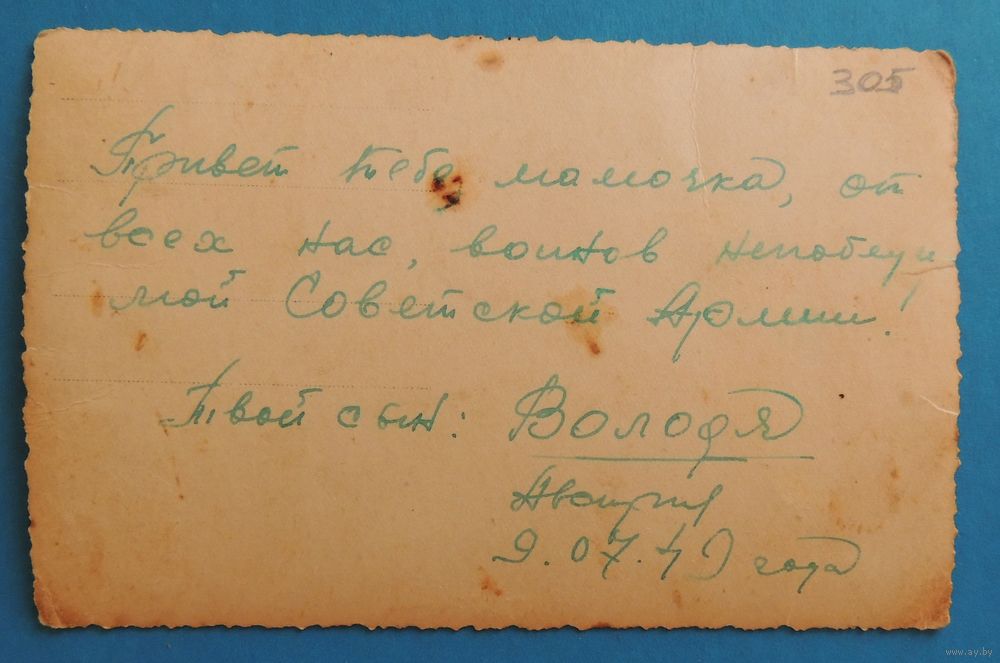 305
Привет тебе, мамочка, от
всех нас, воинов непобеди
мой Советской Армии!
Твой сын: Володя
Австрия
9.07.49 года
www.ay.by